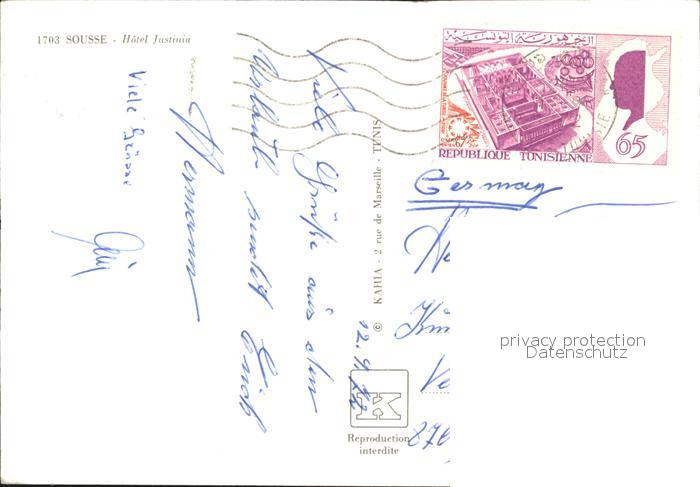 1703 SOUSSE - Hôtel Justinia
Viele Grüsse
Viele Grüße aus dem
Urlaub sendet Euch
Hermann
© KAHIA - 2 rue de Marseille - TUNIS
Reproduction
interdite
الجمهورية التونسية
REPUBLIQUE TUNISIENNE
65
67
Germany
privacy protection
Datenschutz